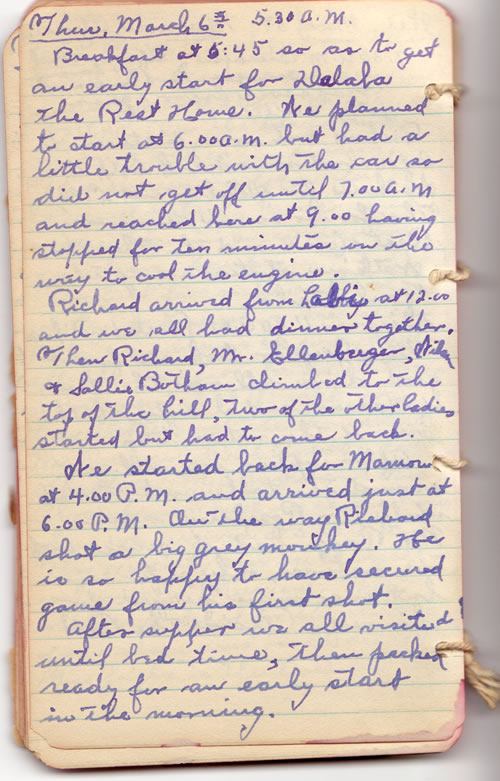 Thur, March 6th 5.30 A.M.
Breakfast at 5:45 so as to get
an early start for Dalaba
the Rest Home. We planned
to start at 6.00 A.M. but had a
little trouble with the car so
did not get off until 7.00 A.M
and reached here at 9.00 having
stopped for ten minutes on the
way to cool the engine.
Richard arrived from at 12.00
and we all had dinner together.
Then Richard, Mr. Ellenberger,
& Sallie Botham climbed to the
top of the hill, two of the other ladies
started but had to come back.
We started back for Mamou
at 4.00 P.M. and arrived just at
6.00 P.M. On the way Richard
shot a big grey monkey. He
is so happy to have secured
game from his first shot.
After supper we all visited
until bed time, then packed
ready for an early start
in the morning.